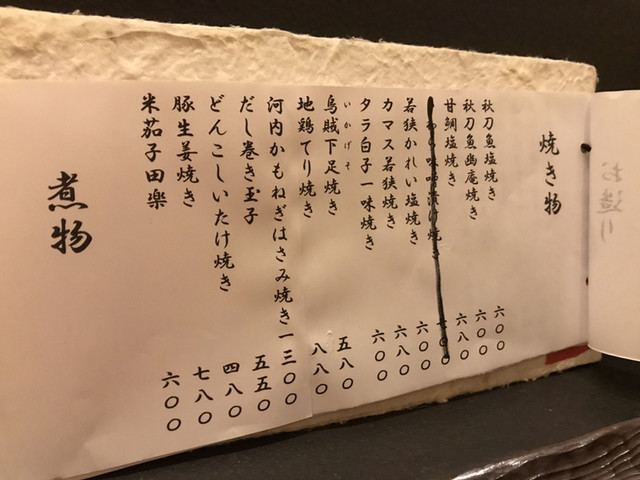 お造り
焼き物
秋刀魚塩焼き 六〇〇
秋刀魚幽庵焼き 六〇〇
甘鯛塩焼き 六八〇
味噌漬け焼き
若狭かれい塩焼き 六〇〇
カマス若狭焼き 六八〇
タラ白子一味焼き 六〇〇
いかげそ
烏賊下足焼き 五八〇
地鶏てり焼き 八八〇
河内かもねぎはさみ焼き 一三〇〇
だし巻き玉子 五五〇
どんこしいたけ焼き 四八〇
豚生姜焼き 七八〇
米茄子田楽 六〇〇
煮物